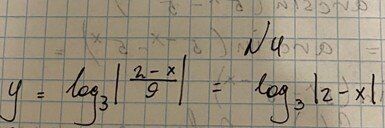 N4
y = log₃|(2-x)/9| = log₃|2-x|